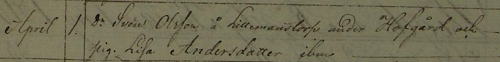 April 1. Dr. Sven Olsson å Littemanstorp under Hofgård och
pig. Lisa Andersdatter ibm